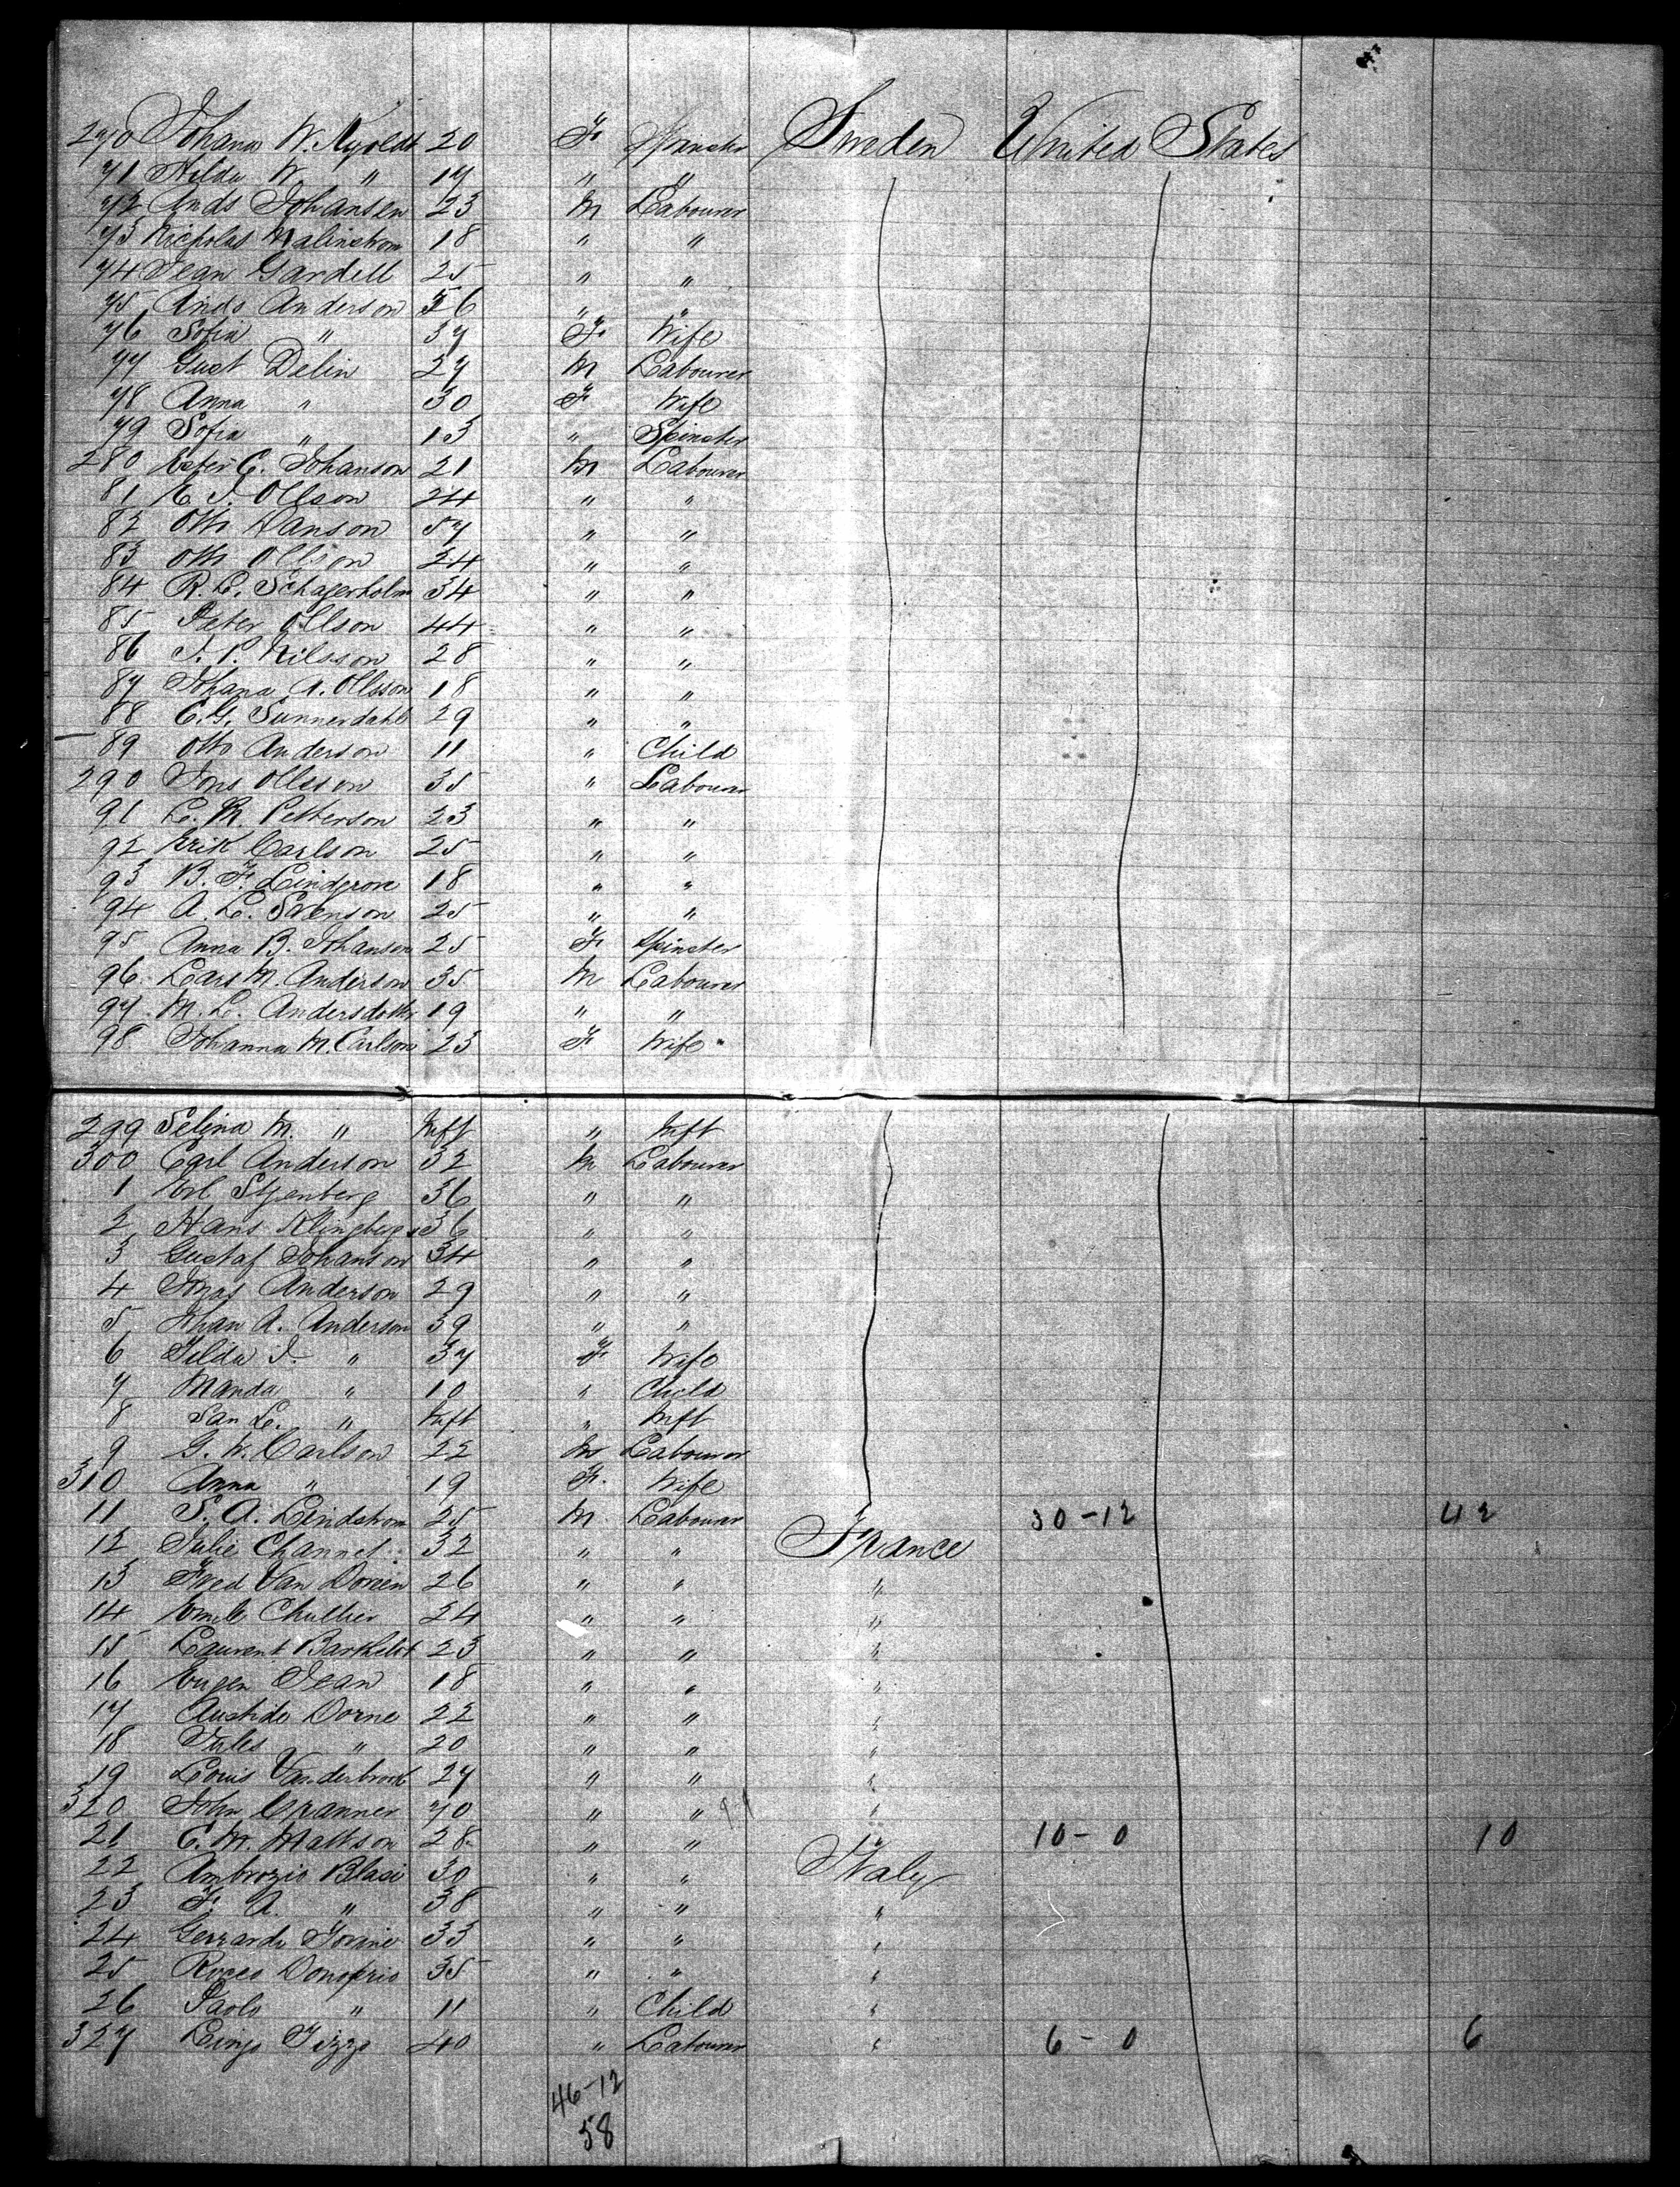 270 Johana W. 20 F Spinster Sweden United States
71 Hilda W. " 17 " "
72 Ands Johansen 23 M Labourer
73 Nicholas Malmstrom 18 " "
74 Jean Gardell 25 " "
75 Ands Anderson 56 " "
76 Sofia " 37 F Wife
77 Gust Delin 27 M Labourer
78 Anna " 30 F Wife
79 Sofia " 13 " Spinster
280 C. Johanson 21 M Labourer
81 J. Ollson 24 " "
82 Otto Hanson 57 " "
83 Otto Ollson 24 " "
84 R. L. Schagerholm 34 " "
85 Peter Ollson 44 " "
86 J. P. Nilsson 28 " "
87 Johana A. Ollsson 18 " "
88 C. G. Sunnerdahl 29 " "
89 Otto Anderson 11 " Child
290 Jons Ollsson 35 " Labourer
91 L. M. Petterson 23 " "
92 Erik Carlson 25 " "
93 B. F. Lindgrove 18 " "
94 A. L. Svenson 25 " "
95 Anna B. Johanson 25 F Spinster
96 Lars M. Anderson 35 M Labourer
97 M. L. Andersdottr 19 " "
98 Johanna M. Carlson 23 F Wife
299 Selina M. " Inft " Inft
300 Carl Anderson 32 M Labourer
1 Stjenberg 36 " "
2 Hans Klingberg 36 " "
3 Gustaf Johanson 34 " "
4 Jonas Anderson 29 " "
5 Johan A. Anderson 39 " "
6 Tilda J. " 37 F Wife
7 Manda " 10 " Child
8 San L. " Inft " Inft
9 G. W. Carlson 22 M Labourer
310 Anna " 19 F. Wife
11 S. A. Lindstrom 25 M. Labourer 30-12 42
12 Julie Channel 32 " " France
13 Fred Van Doreen 26 " " "
14 Emile Chullier 24 " " "
15 Laurent Barthelot 23 " " "
16 Eugen Jean 18 " " "
17 Austide Dorne 22 " " "
18 Jules " 20 " " "
19 Louis Vanderbrock 27 " " "
320 John Cranner 70 " " "
21 C. M. Mattson 28 " " " 10-0 10
22 Ambrozio Blasi 30 " " Italy
23 F. A. " 38 " " "
24 Gerrardo Iovine 33 " " "
25 Rocco Donofrio 35 " " "
26 Paolo " 11 " Child "
327 Tizzo 40 " Labourer " 6-0 6
46-12
58